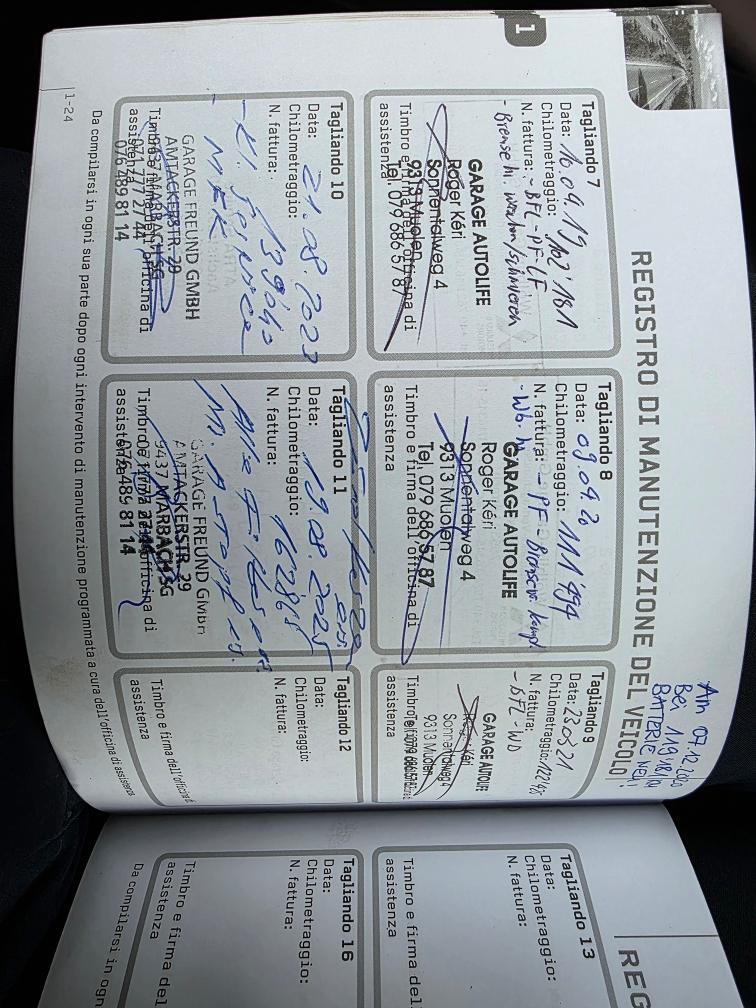 1
REGISTRO DI MANUTENZIONE DEL VEICOLO
Am 07.12.2020
Bei 119'181 km
BATTERIE NEU!
Tagliando 7
Data: 16.09.19
Chilometraggio: 102'181
N. fattura: - BFL - PF - LF
- Bremse hi.
GARAGE AUTOLIFE
Roger Kéri
Sonnentalweg 4
9313 Muolen
Tel. 079 686 57 87
Timbro e firma dell'officina di
assistenza
Tagliando 8
Data: 09.09.20
Chilometraggio: 111'494
N. fattura: - PF - Bremse kompl.
- Wb. hi.
GARAGE AUTOLIFE
Roger Kéri
Sonnentalweg 4
9313 Muolen
Tel. 079 686 57 87
Timbro e firma dell'officina di
assistenza
Tagliando 9
Data:
Chilometraggio:
N. fattura:
- BFL - WD
GARAGE AUTOLIFE
Roger Kéri
Sonnentalweg 4
9313 Muolen
Tel. 079 686 57 87
Timbro e firma dell'officina di
assistenza
Tagliando 10
Data: 21.08.2023
Chilometraggio:
N. fattura:
- Kl. Service
- MFK
GARAGE FREUND GMBH
AMTACKERSTR. 29
9437 MARBACH SG
071 777 27 44
076 489 81 14
Timbro e firma dell'officina di
assistenza
Tagliando 11
Data: 19.08.2025
Chilometraggio:
N. fattura:
GARAGE FREUND GmbH
AMTACKERSTR. 29
9437 MARBACH SG
076 489 81 14
Timbro e firma dell'officina di
assistenza
Tagliando 12
Data:
Chilometraggio:
N. fattura:
Timbro e firma dell'officina di
assistenza
Da compilarsi in ogni sua parte dopo ogni intervento di manutenzione programmata a cura dell'officina di assistenza
1-24
REG
Tagliando 13
Data:
Chilometraggio:
N. fattura:
Timbro e firma del
assistenza
Tagliando 16
Data:
Chilometraggio:
N. fattura:
Timbro e firma del
assistenza
Da compilarsi in ogn